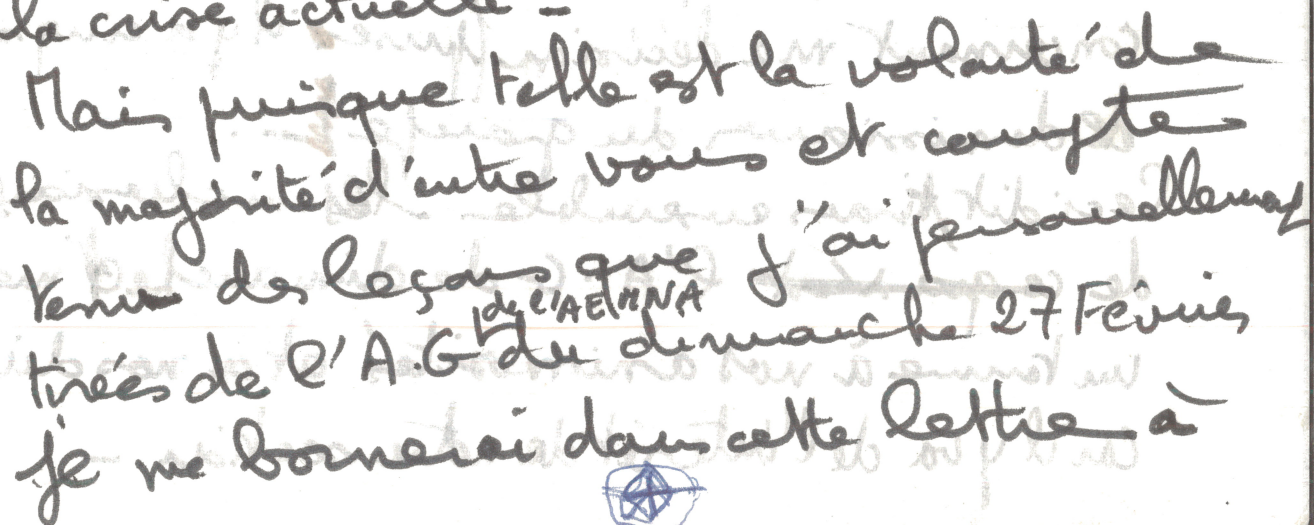 la crise actuelle -
Mais puisque telle est la volonté de
la majorité d'entre vous et compte
tenu des leçons que j'ai personnellement
tirées de l'A.G de l'AEMNA du dimanche 27 Février
je me bornerai dans cette lettre à